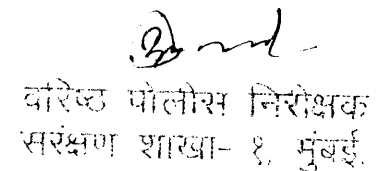 वरिष्ठ पोलीस निरीक्षक
सरंक्षण शाखा- १, मुंबई.